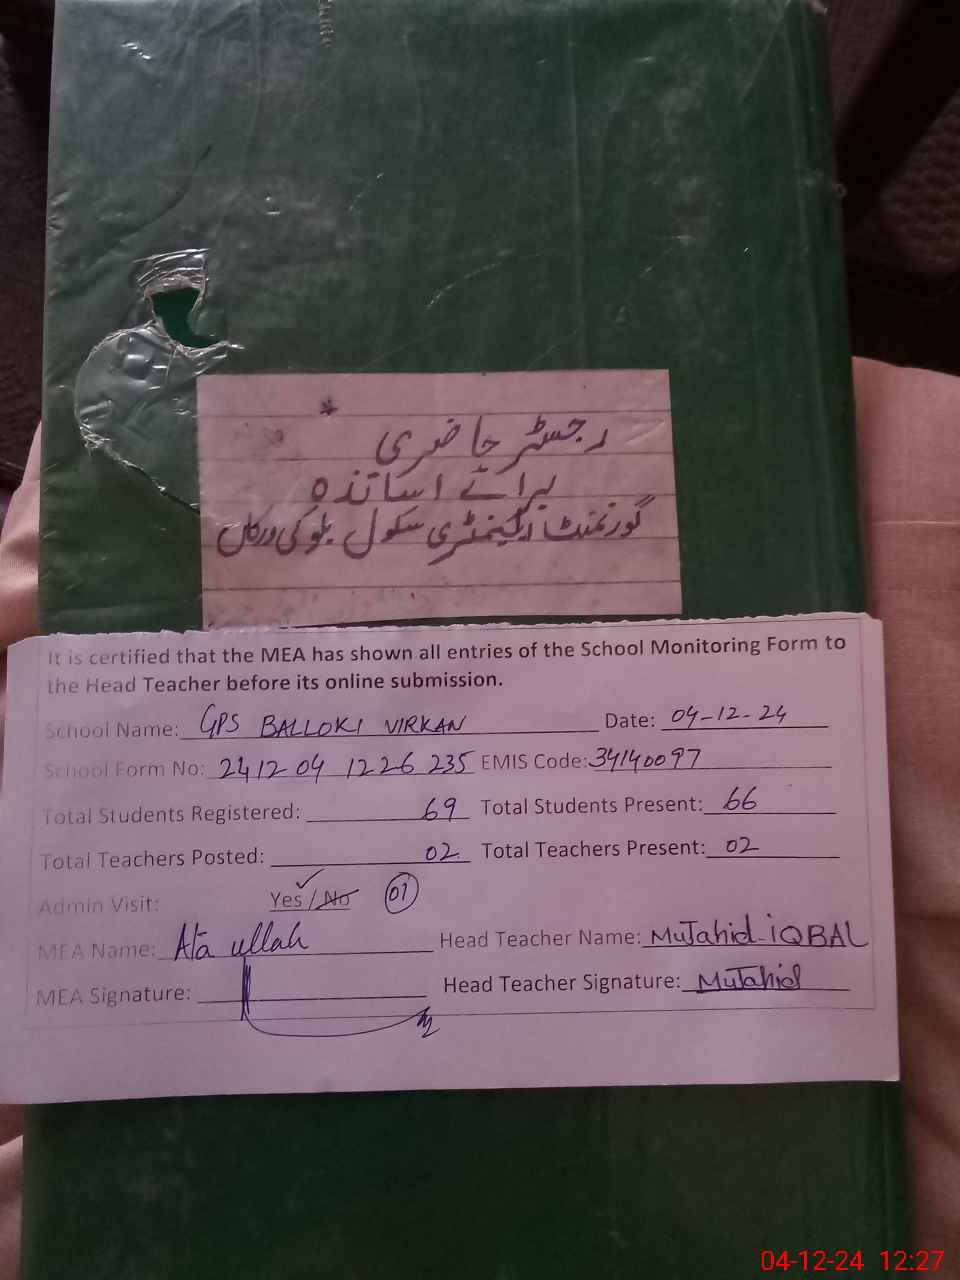 رجسٹر حاضری
برائے اساتذہ
گورنمنٹ ایلیمنٹری سکول بلوکی ورکاں
It is certified that the MEA has shown all entries of the School Monitoring Form to
the Head Teacher before its online submission.
School Name: GPS BALLOKI VIRKAN Date: 04-12-24
School Form No: 241204 1226 235 EMIS Code: 34140097
Total Students Registered: 69 Total Students Present: 66
Total Teachers Posted: 02 Total Teachers Present: 02
Admin Visit: Yes / No 01
MEA Name: Ata ullah Head Teacher Name: MuJahid-iQBAL
MEA Signature: Head Teacher Signature: MuJahid
04-12-24 12:27